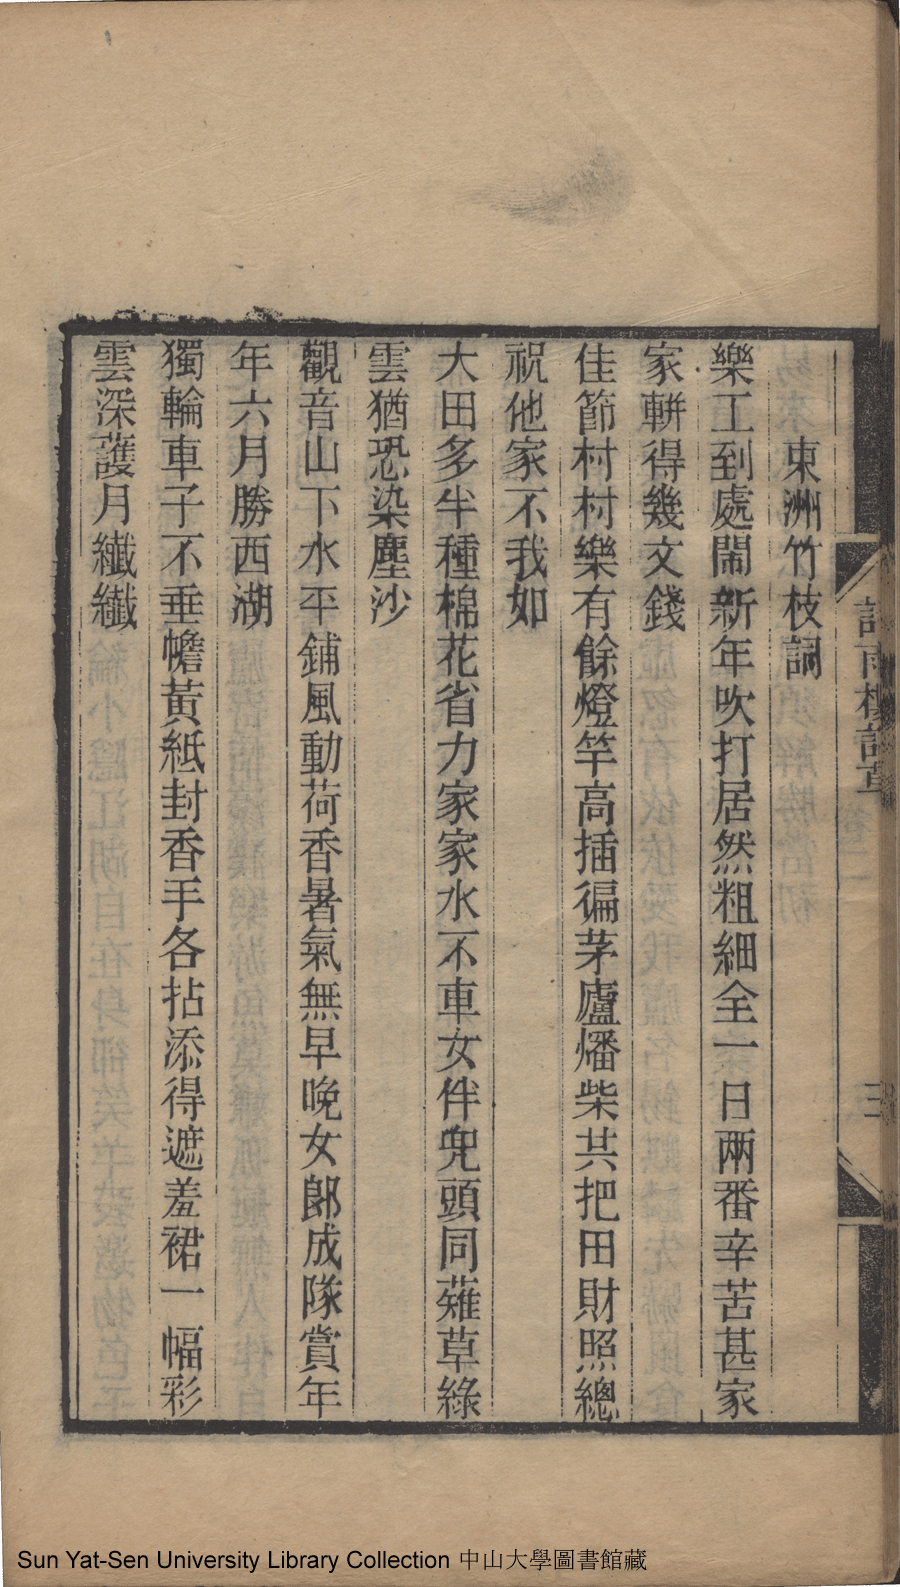 東洲竹枝詞
樂工到處鬧新年吹打居然粗細全一日兩番辛苦甚家
家輧得幾文錢
佳節村村樂有餘燈竿高插徧茅廬燔柴共把田財照總
祝他家不我如
大田多半種棉花省力家家水不車女伴兜頭同薙草綠
雲猶恐染塵沙
觀音山下水平鋪風動荷香暑氣無早晚女郎成隊賞年
年六月勝西湖
獨輪車子不垂幨黃紙封香手各拈添得遮羞裙一幅彩
雲深護月纖纖
雨樓
三
Sun Yat-Sen University Library Collection 中山大學圖書館藏